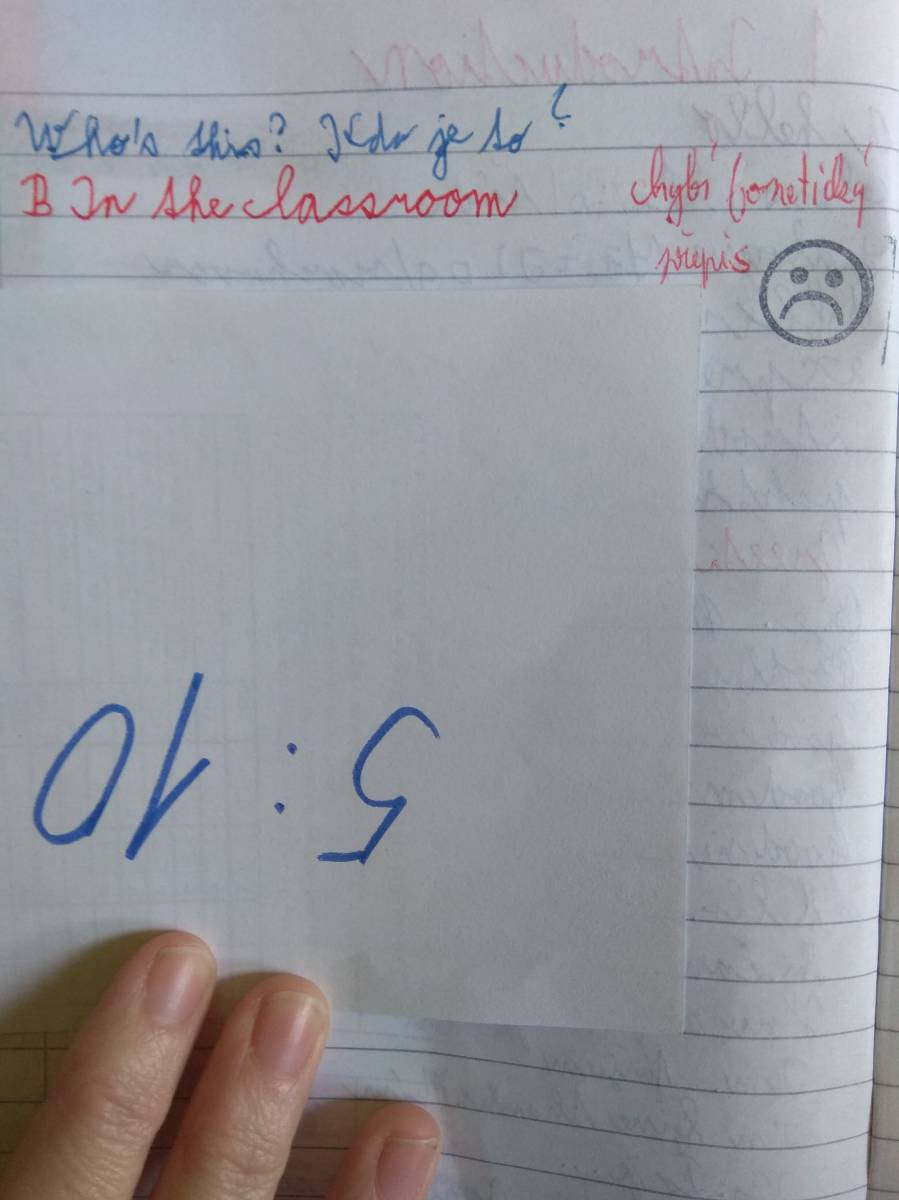 Who's this? Kdo je to?
B In the classroom
chybí fonetický
přepis
5:10